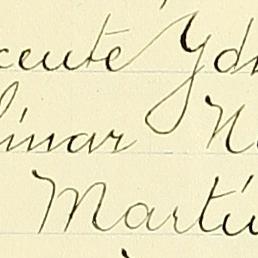 cente Yd
linar N
Martí